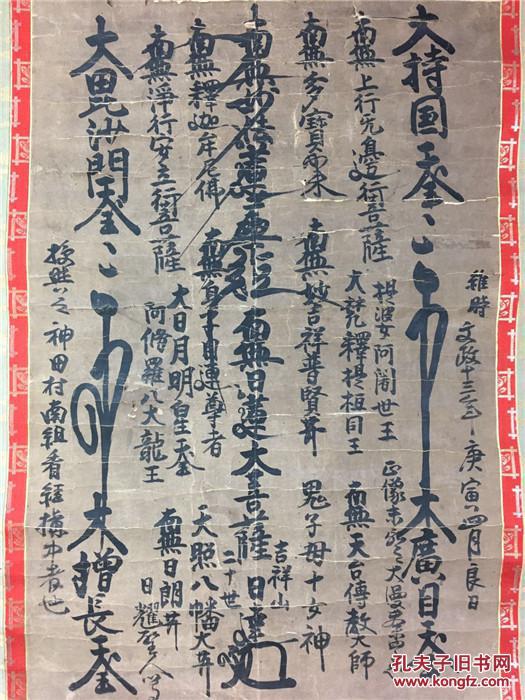 大持国天王
大廣目天王
維時文政十三年庚寅四月良日
南無上行無邊行菩薩
提婆 阿闍世王
大梵釋提桓因王
正像未
南無多寶如来
南無妙吉祥普賢菩薩
南無天台傳教大師
鬼子母十女神
南無妙法蓮華経
南無日蓮大菩薩
吉祥山
二十世
南無釋迦牟尼佛
南無身子目連尊者
天照八幡大菩薩
南無淨行安立行菩薩
大日月明星天王
阿脩羅八大龍王
南無日朗菩薩
日耀
大毘沙門天王
大増長天王
授与之 神田村南組看経講中者也
孔夫子旧书网